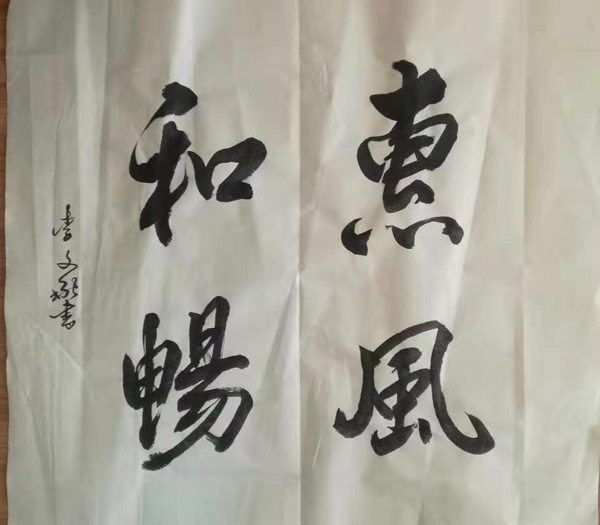 惠風
和暢
李文
書